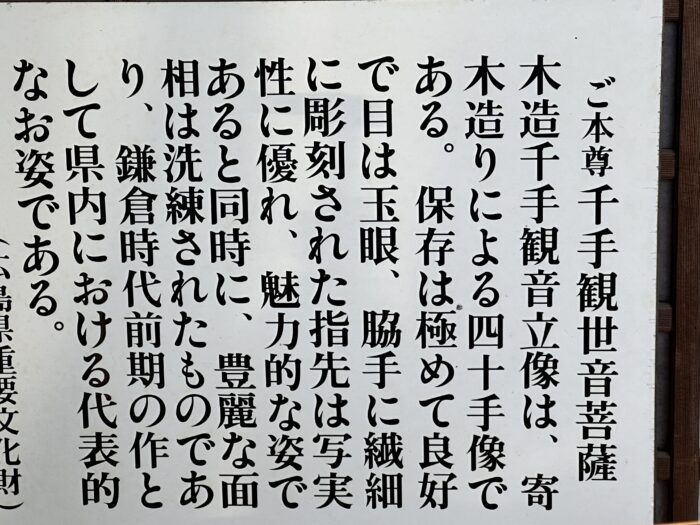 ご本尊 千手観世音菩薩
木造千手観音立像は、寄
木造りによる四十手像で
ある。保存は極めて良好
で目は玉眼、脇手に繊細
に彫刻された指先は写実
性に優れ、魅力的な姿で
あると同時に、豊麗な面
相は洗練されたものであ
り、鎌倉時代前期の作と
して県内における代表的
なお姿である。
島県重要文化財）